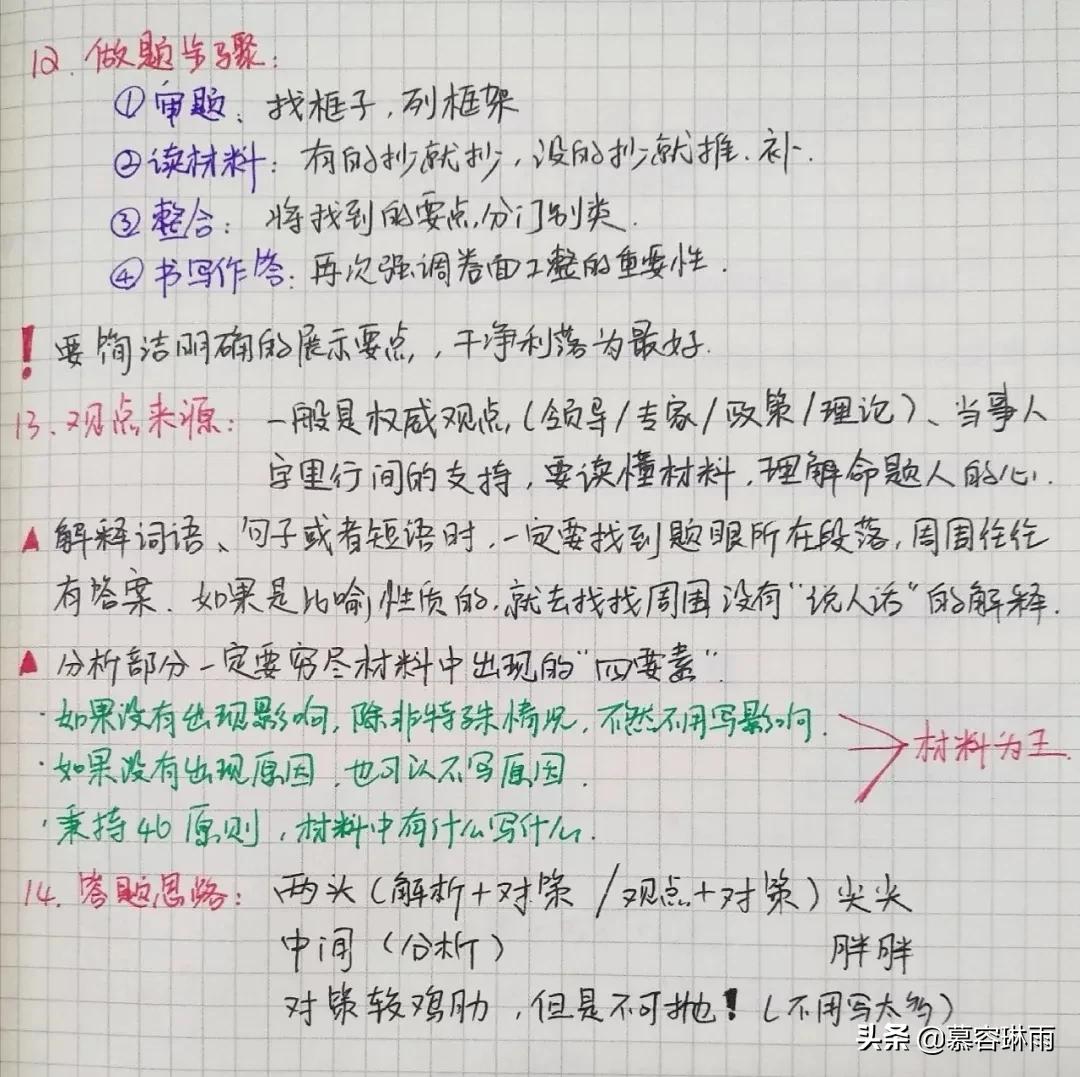 12. 做题步骤：
①审题：找框子，列框架
②读材料：有的抄就抄，没的抄就推、补.
③整合：将找到的要点分门别类.
④书写作答：再次强调卷面工整的重要性.
！要简洁明确的展示要点，干净利落为最好.
13. 观点来源：一般是权威观点（领导/专家/政策/理论）、当事人
字里行间的支持，要读懂材料，理解命题人的心.
▲解释词语、句子或者短语时，一定要找到题眼所在段落，周围往往
有答案.如果是比喻性质的，就去找找周围没有“说人话”的解释.
▲分析部分一定要穷尽材料中出现的“四要素”.
·如果没有出现影响，除非特殊情况，不然不用写影响.
·如果没有出现原因，也可以不写原因.
材料为王.
·秉持40原则，材料中有什么写什么.
14. 答题思路：两头（解析+对策/观点+对策）尖尖
中间（分析） 胖胖
对策较鸡肋，但是不可抛！（不用写太多）
头条 @慕容琳雨